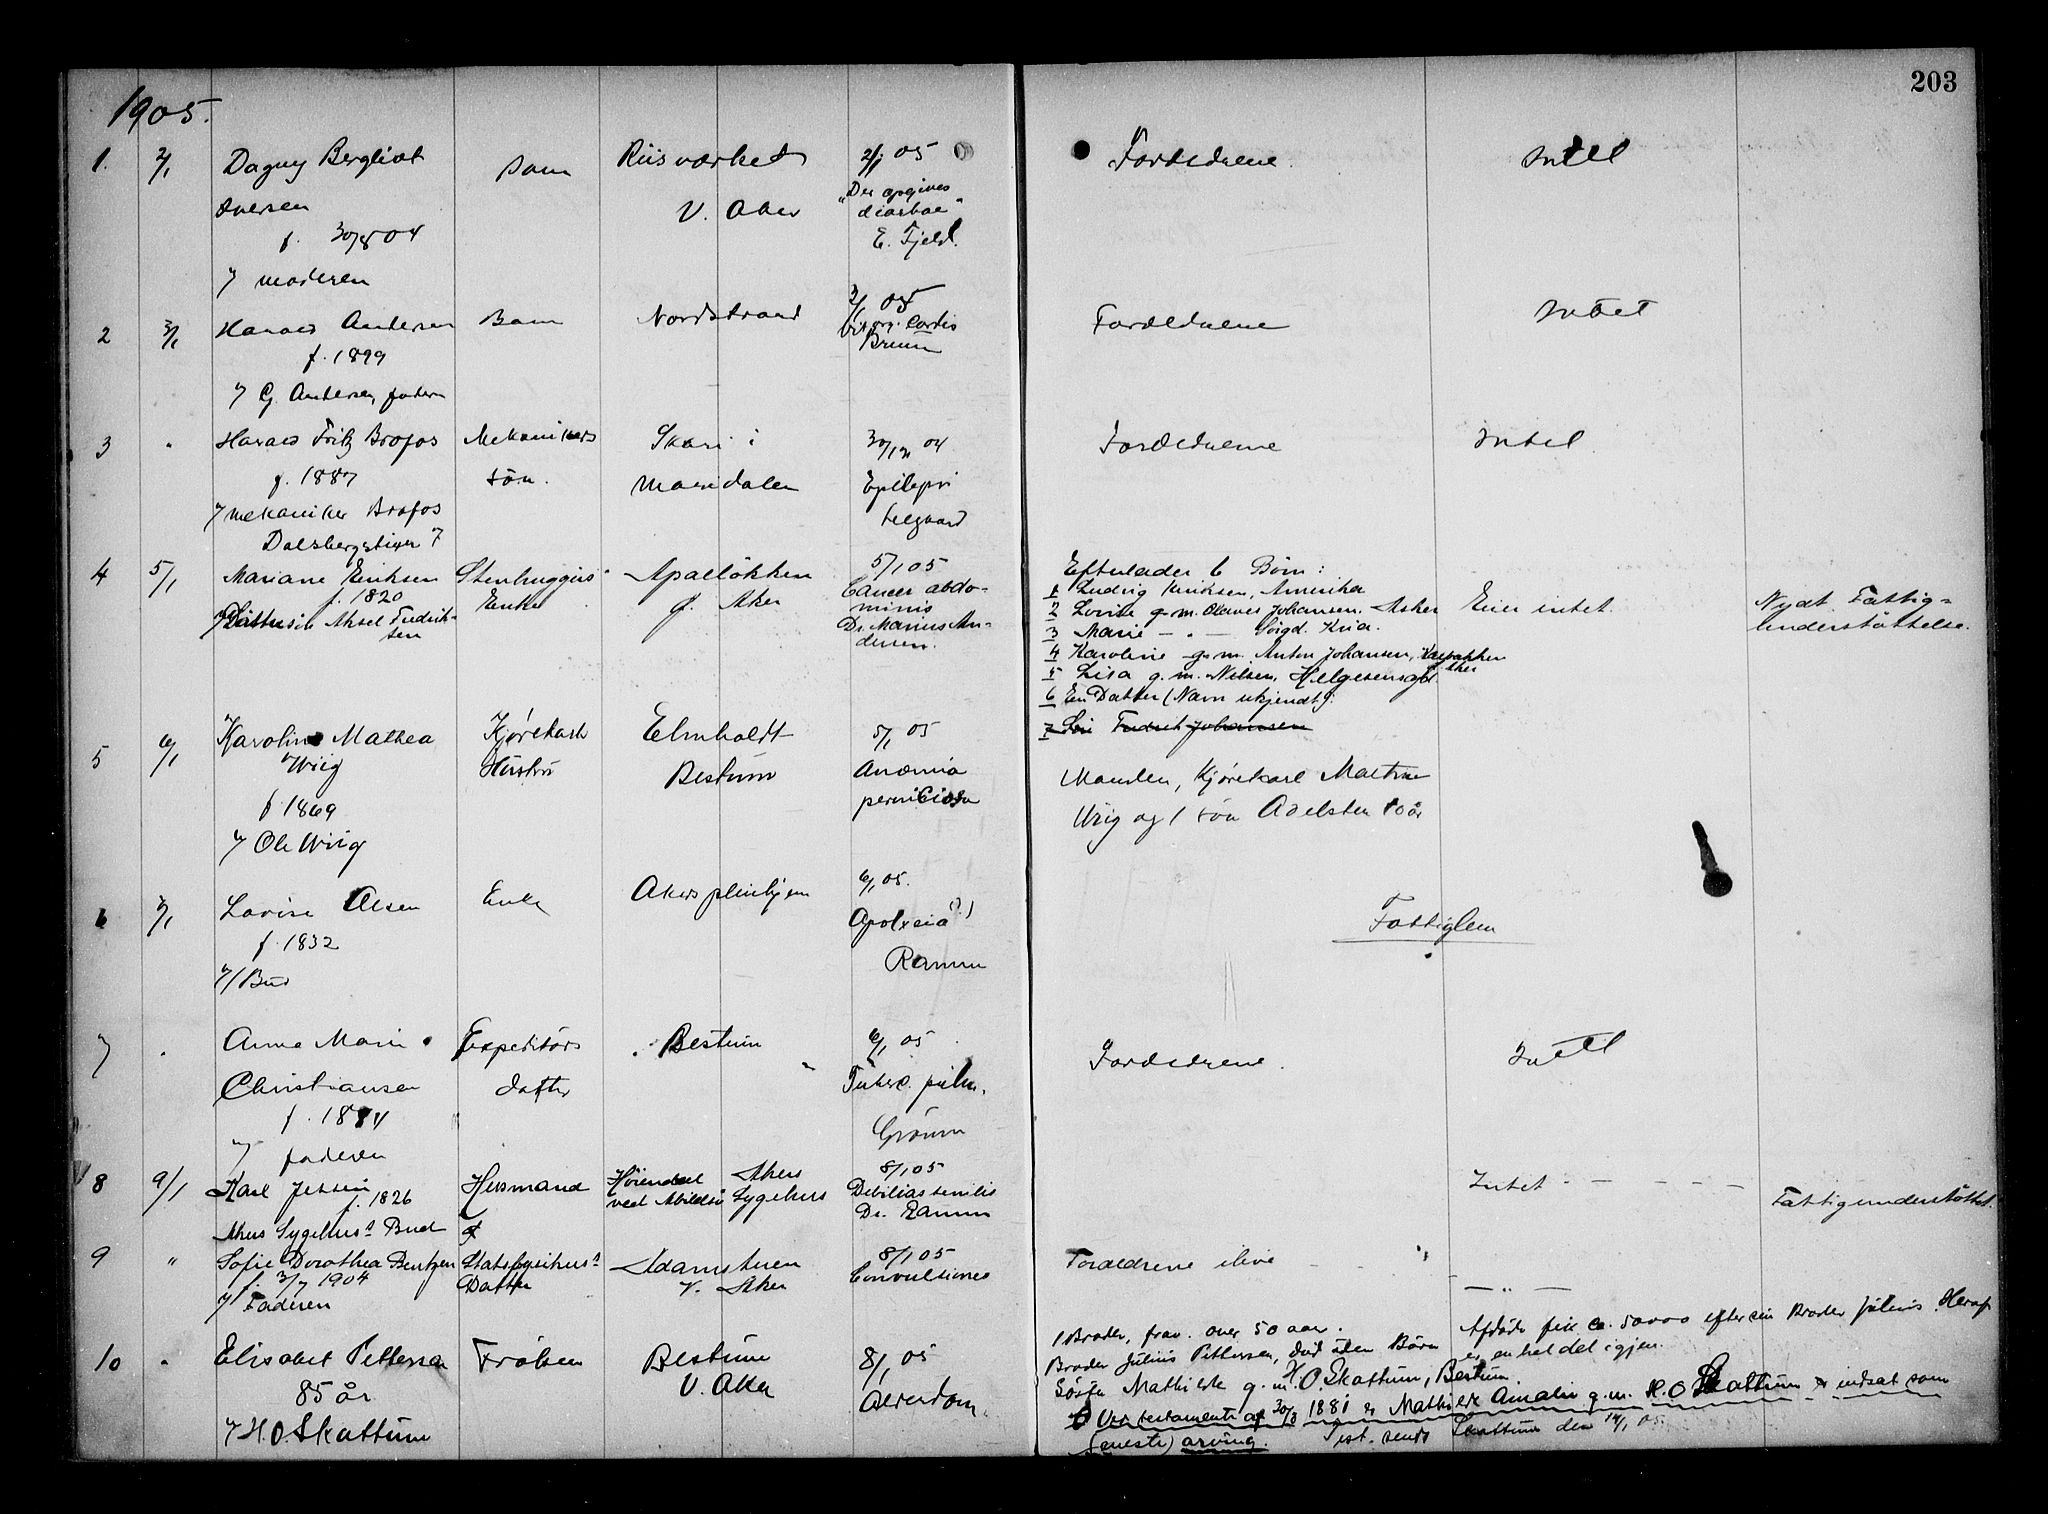 203
1905.
1. 2/1 Dagny Bergliot Barn Riisværket 2/1 05 Forældrene. Intet
Iversen V. Aker "Der opgives diarhoe"
f. 30/8 04 E. Fjeld.
v/ moderen
2 3/1 Harald Andersen Barn Nordstrand 2/1 05 Forældrene Intet
f. 1899 Vit. org. Cordis
Bruun
v/ G. Andersen, faderen
3 " Harald Fritz Brofos Mekanikers Skari i 30/12 04 Forældrene Intet.
f. 1887 søn. Maridalen Epilepsi
v/ mekaniker Brofos
Dalsbergstien 7
4 5/1 Mariane Eriksen Stenhuggers 5/1 05 Efterlader 6 Børn:
f. 1820 Enke Ø. Aker Cancer abdo-
minis
v/ Aksel Fredrik-
sen
Dr. Marius An-
dersen.
1 Ludvig Eriksen, Amerika
2 Lovise g.m. Johansen. Asker Eier intet. Nydt Fattig-
understøttelse.
3 Marie — " — Kria.
4 Karoline g.m. Anton Johansen,
5 Lisa g.m. Nilsen, Helgesensgd.
6 En Datter (Navn ukjendt).
7 Fredrik Johansen
5 6/1 Karoline Mathea Kjørekarls Elmholdt 5/1 05
Wiig Hustru Bestum Anæmia
f. 1869 perniciosa
v/ Ole Wiig
Manden, Kjørekarl Martin
Wiig og 1 søn Adelsten 10 år
6 7/1 Lovise Olsen Enke Akers pleiehjem 6/1 05. Fattiglem
f. 1832 Apolxia (?)
v/ Bud Ramm
7 " Anna Marie Expeditørs Bestum 6/1 05 Forældrene. Intet
Christiansen datter Tuberc. pulm.
f. 1884 Grønn
v/ faderen
8 9/1 Karl Jensen Husmand Akers 8/1 05 Intet — — — —
f. 1826 ved Abildsø Sygehus Debilitas senilis Fattigunderstøttet.
Akers Sygehus's Bud Dr. Ramm
9 " Sofie Dorothea Bentzen Statsfysikus's Adamstuen 8/1 05 Forældrene ilive
f. 3/7 1904 Datter V. Aker Convulsiones — " —
v/ Faderen
10 " Elisabet Pettersen Frøken Bestum 8/1 05
85 år V. Aker Alderdom.
v/ H.O. Skattum
1 Broder, frav. over 50 aar. Afdøde fik ca. 50000 efter sin Broder Julius. Heraf
Broder Julius Pettersen, død uden Børn er en hel del igjen.
Søster Mathilde g.m. H.O. Skattum, Bestum.
Ved testamente af 30/8 1881 er Mathilde Amalie g.m. H.O. Skattum indsat som
(eneste) arving. Test. sendt Skattum den 14/1 05.